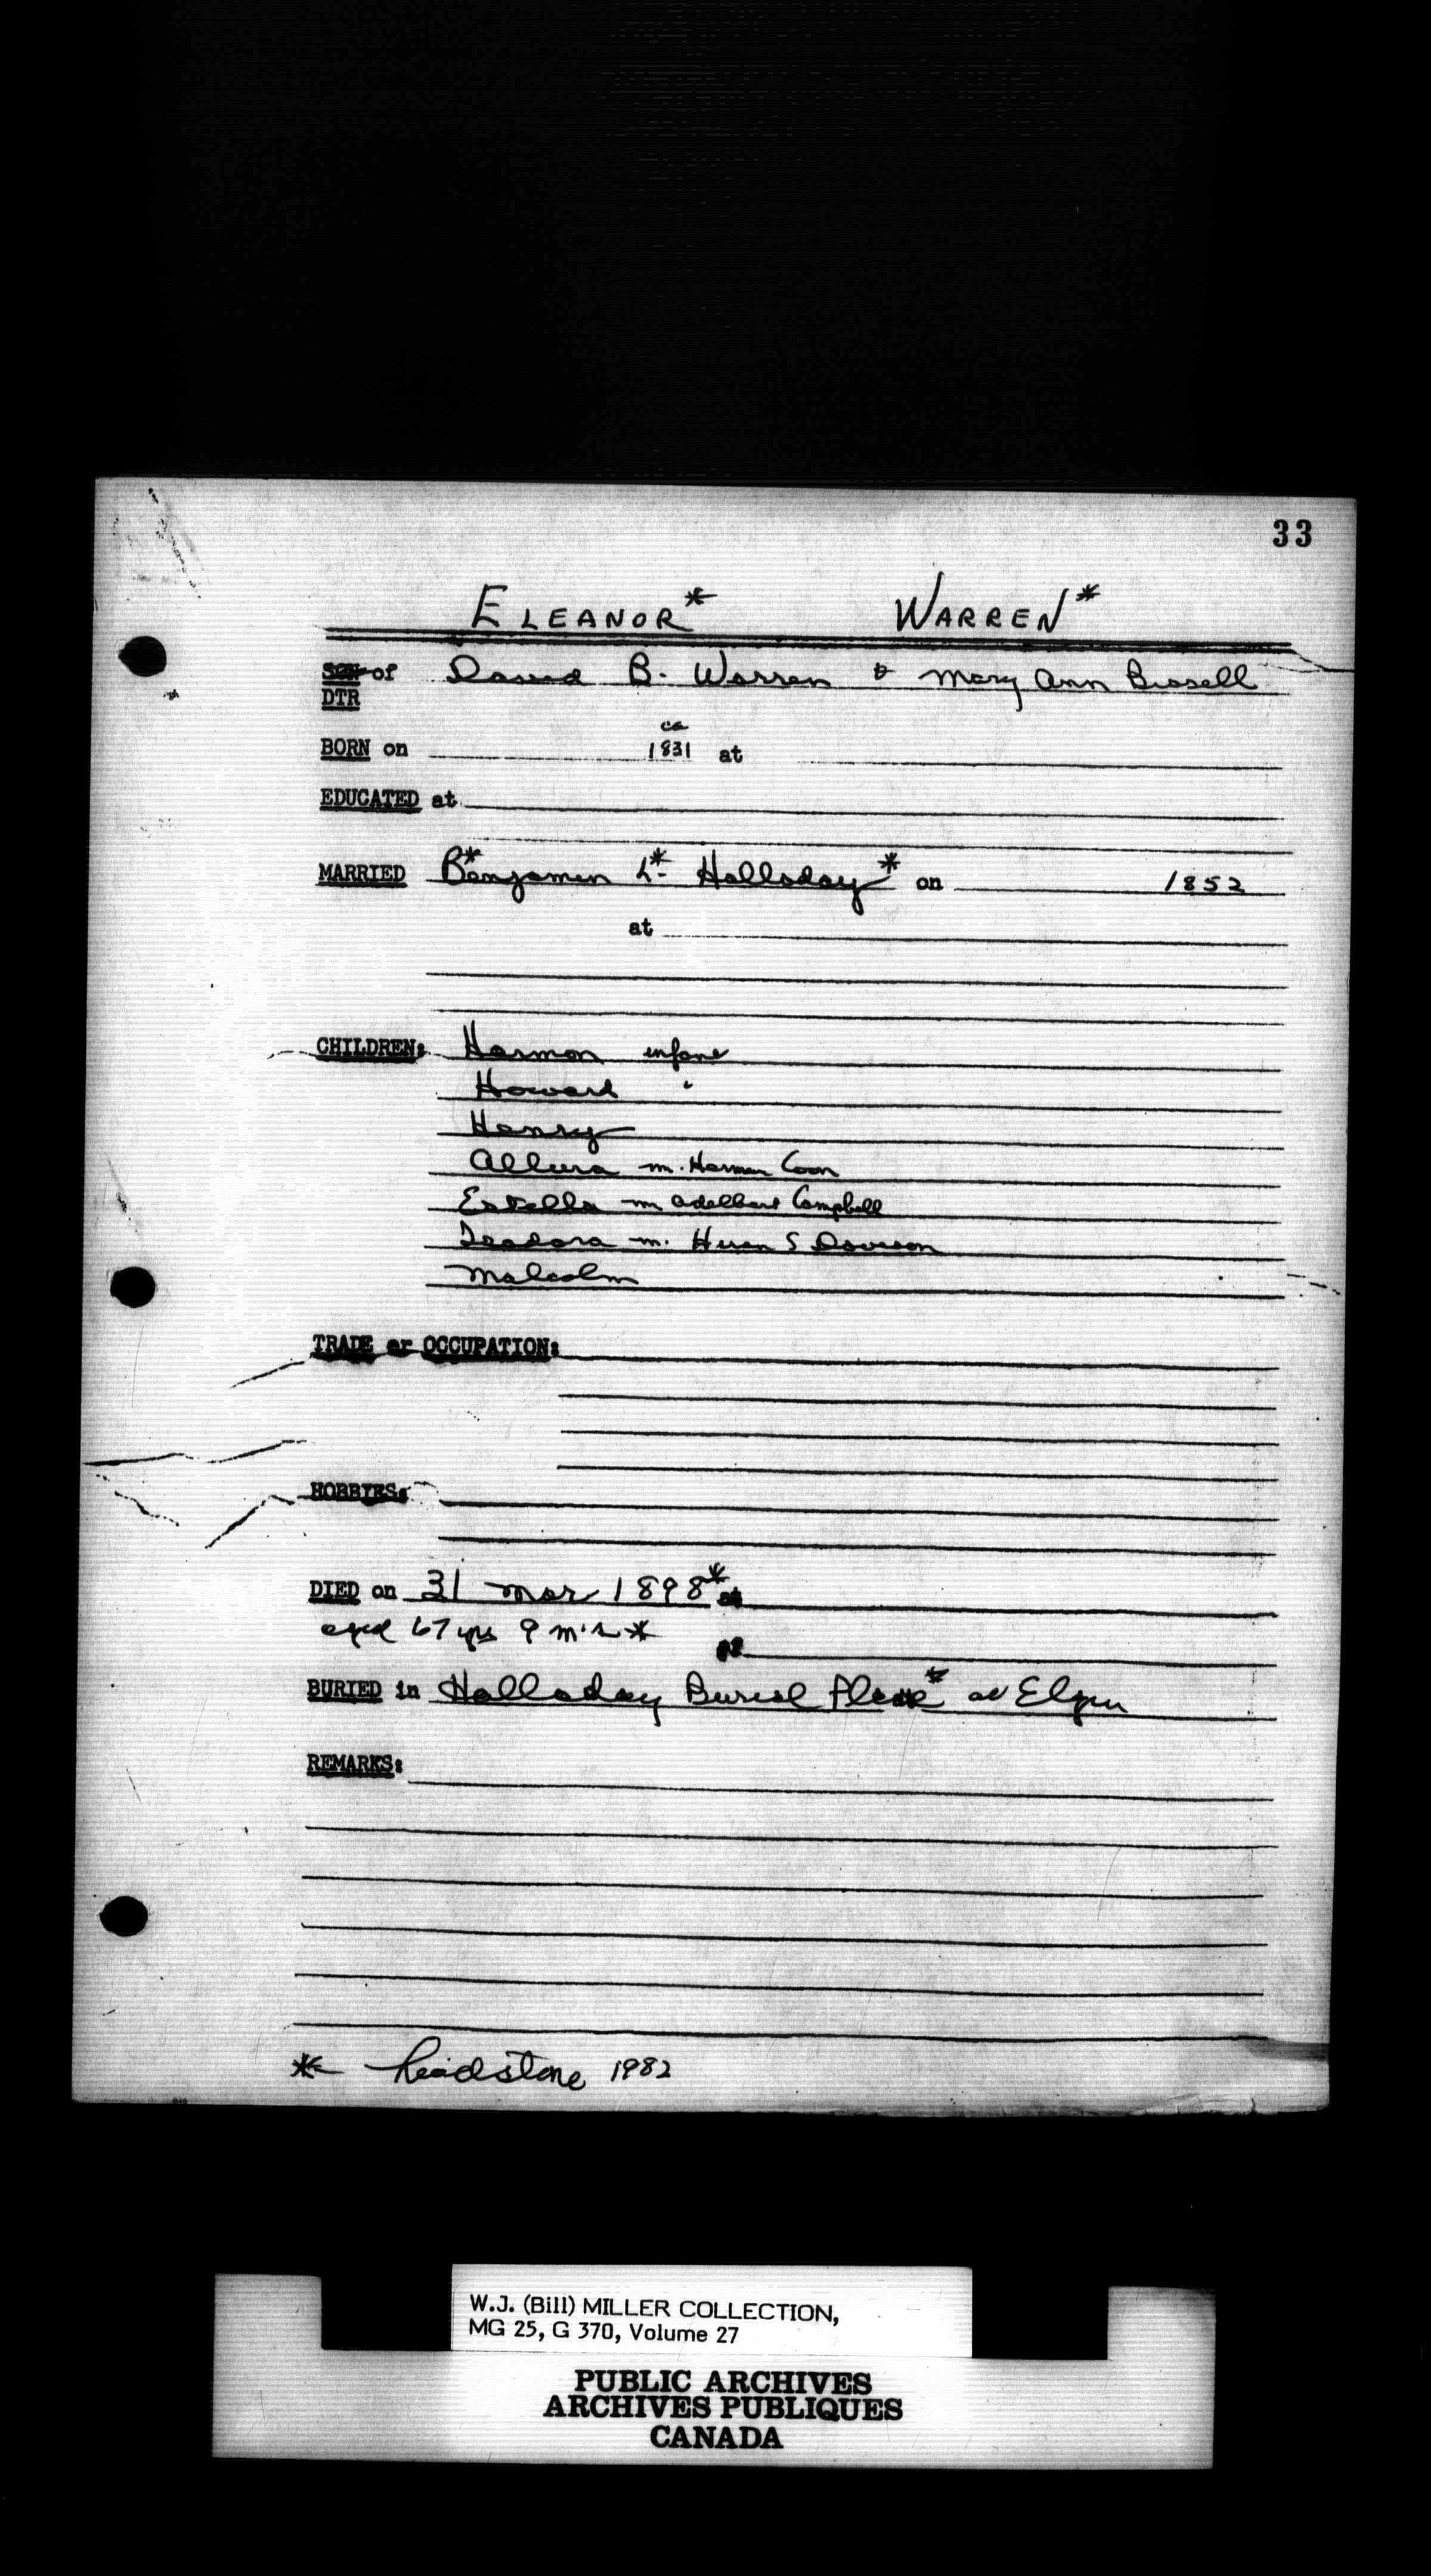 33
ELEANOR* WARREN*
SON of David B. Warren & Mary Ann Bissell
DTR
ca
BORN on 1831 at
EDUCATED at
MARRIED B*enjamin L.* Halladay* on 1852
at
CHILDREN: Harmon infant
Howard "
Henry
Allura m. Harmon Coon
Estella m Adelbert Campbell
m. Hiram S Davison
Malcolm
TRADE or OCCUPATION:
HOBBIES:
DIED on 31 Mar 1898* at
aged 67 yrs 9 m's *
of
BURIED in Halladay Burial Place* at Elgin
REMARKS:
* headstone 1982
W.J. (Bill) MILLER COLLECTION,
MG 25, G 370, Volume 27
PUBLIC ARCHIVES
ARCHIVES PUBLIQUES
CANADA